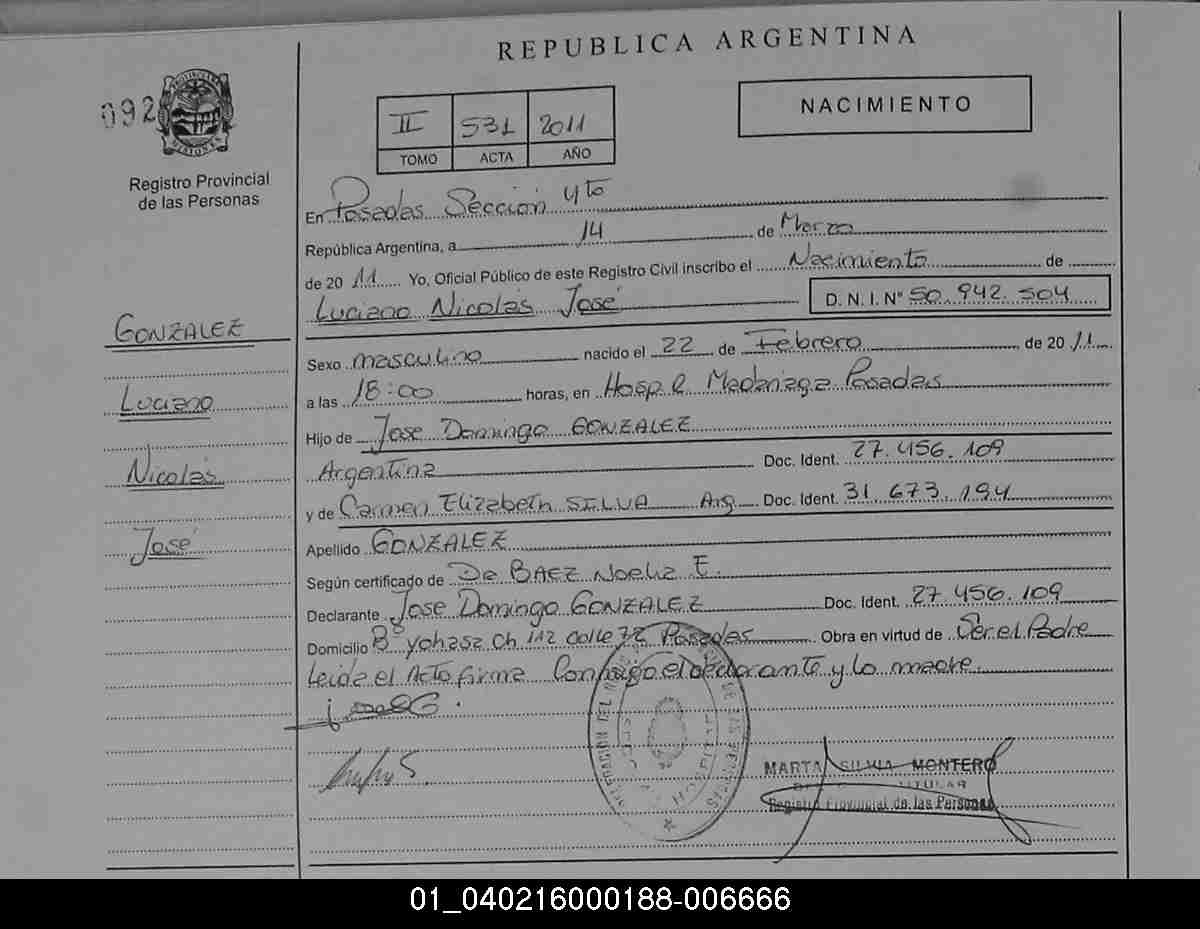 REPUBLICA ARGENTINA
092
MISIONES
Registro Provincial
de las Personas
II 531 2011
TOMO ACTA AÑO
NACIMIENTO
En Posadas Sección 4to
República Argentina, a 14 de Marzo
de 2011 Yo, Oficial Público de este Registro Civil inscribo el Nacimiento de
Luciano Nicolás José D. N. I. Nº 50.942.504
GONZALEZ
Luciano
Nicolás
José
Sexo masculino nacido el 22 de Febrero de 2011
a las 18:00 horas, en Hosp. R. Madariaga Posadas
Hijo de Jose Domingo GONZALEZ
Argentina Doc. Ident. 27.456.109
y de Carmen Elizabeth SILVA Arg Doc. Ident. 31.673.194
Apellido GONZALEZ
Según certificado de De BAEZ Noelia E.
Declarante Jose Domingo GONZALEZ Doc. Ident. 27.456.109
Domicilio Bº Yohasa Ch 112 Calle 72 Posadas Obra en virtud de Ser el Padre
Leida el Acta firma Conmigo el declarante y la madre
MARTA SILVIA MONTERO
TITULAR
Registro Provincial de las Personas
HOSPITAL
01_040216000188-006666